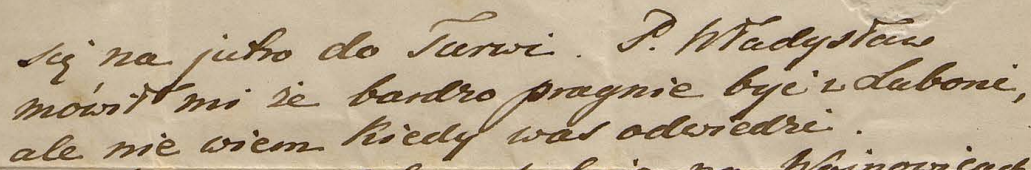 się na jutro do Turwi. P. Władysław
mówił mi że bardzo pragnie być w Luboni,
ale nie wiem kiedy was odwiedzi.
na Wojnowicach